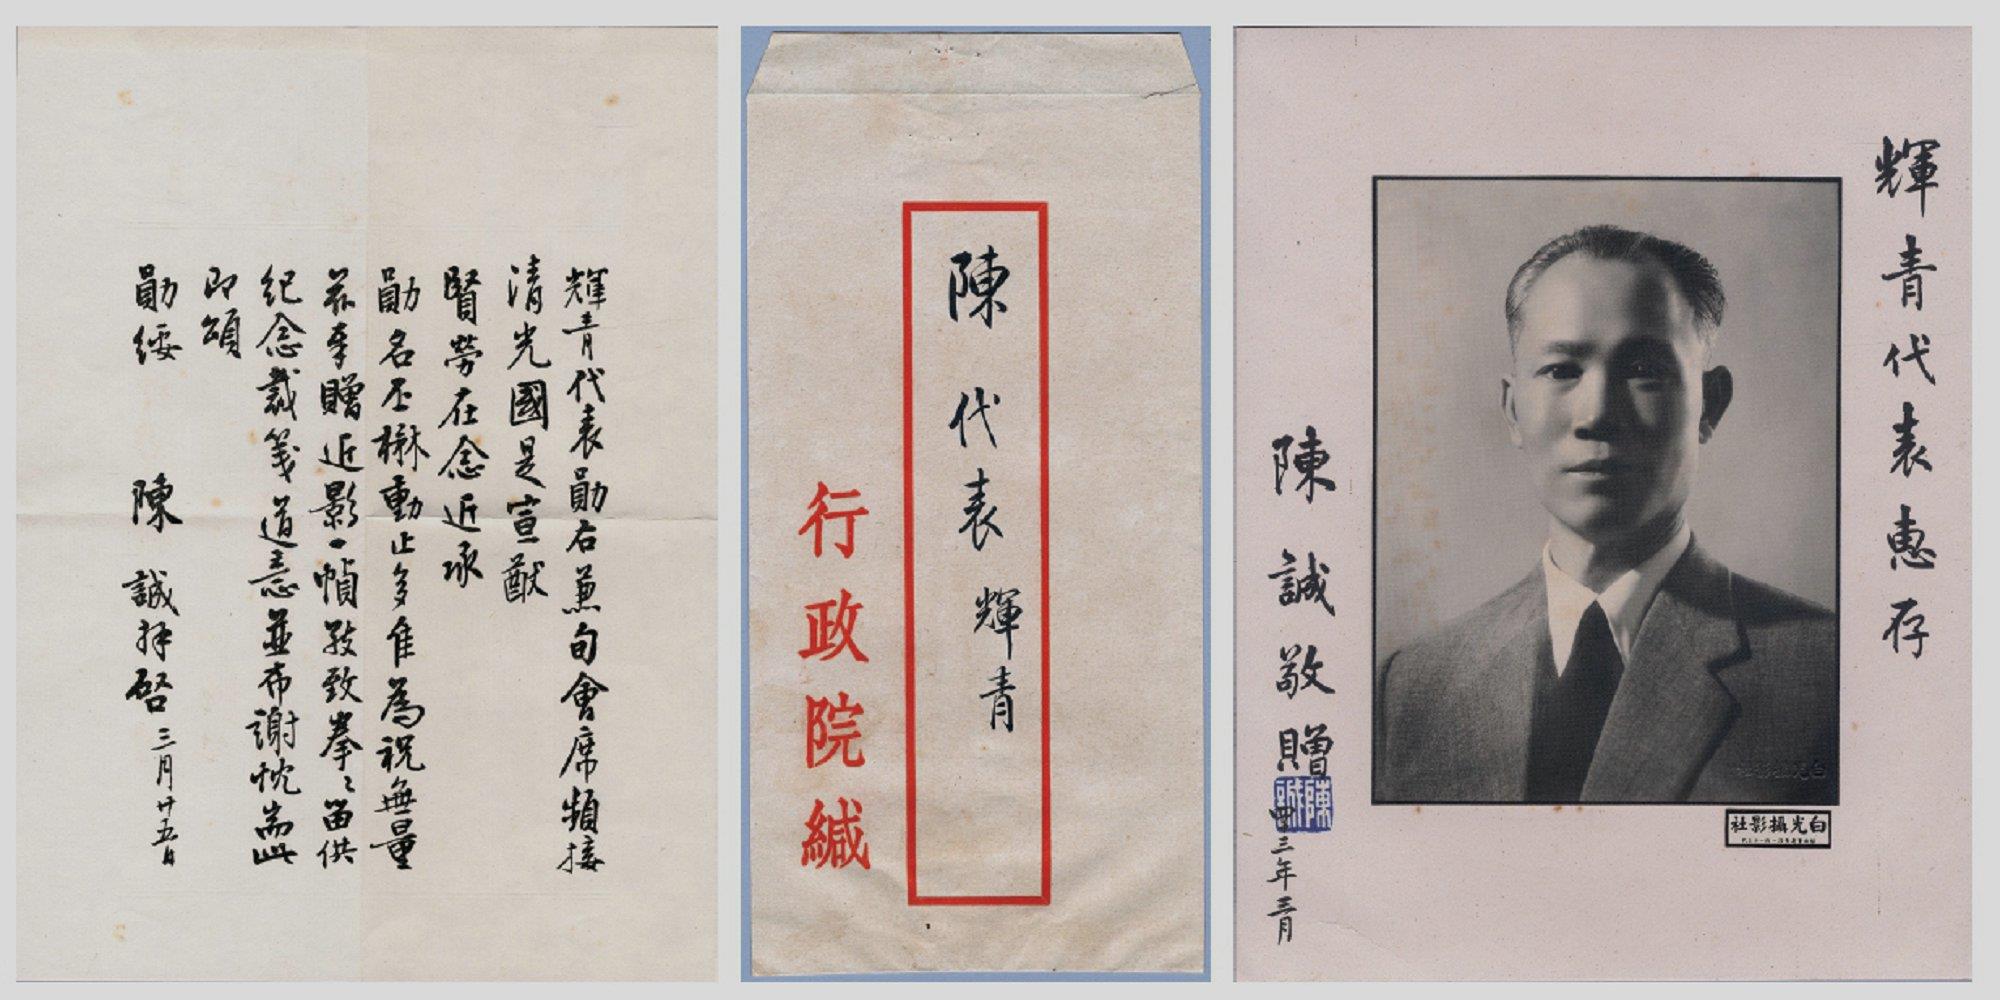 輝青代表勛右兼旬會席頻接
清光國是宣猷
賢勞在念近承
勛名丕楙動止多隹為祝無量
茲奉贈近影一幀敬致拳々留供
紀念裁箋道意並布謝忱耑此
即頌
勛綏
陳誠拜啓三月廿五日
陳代表輝青
行政院緘
輝青代表惠存
陳誠敬贈
陳誠
四三年三月
白光攝影社